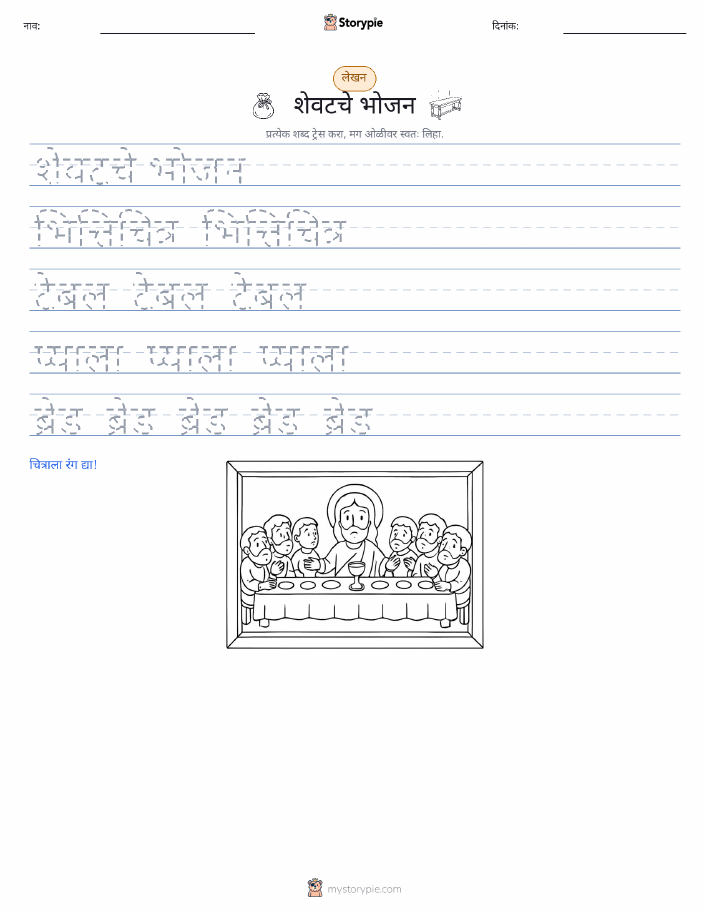 नाव:
Storypie
दिनांक:
लेखन
शेवटचे भोजन
प्रत्येक शब्द ट्रेस करा, मग ओळीवर स्वतः लिहा.
शेवटचे भोजन
भित्तिचित्र भित्तिचित्र
टेबल टेबल टेबल
प्याला प्याला प्याला
ब्रेड ब्रेड ब्रेड ब्रेड ब्रेड
चित्राला रंग द्या!
mystorypie.com